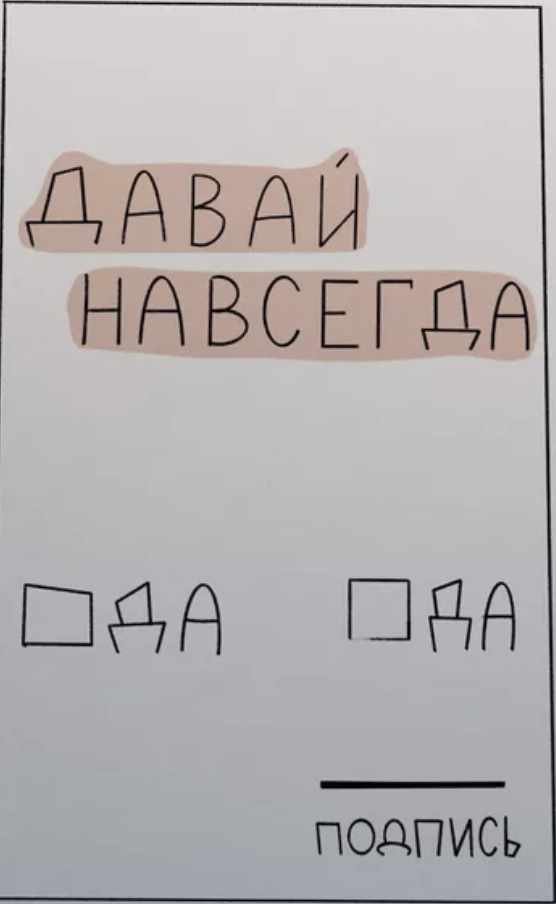 ДАВАЙ
НАВСЕГДА
ДА ДА
ПОДПИСЬ